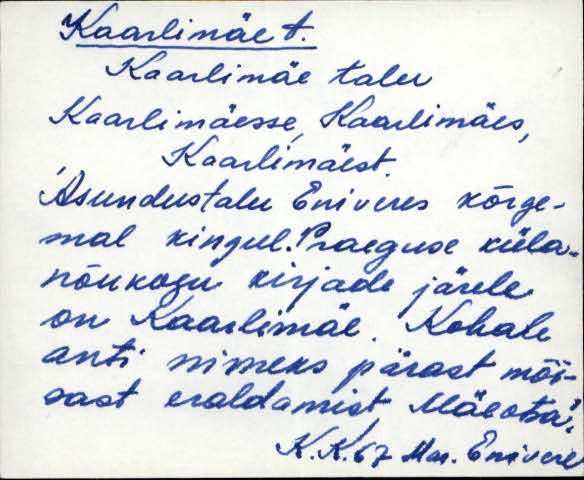 Kaarlimäe t.
Kaarlimäe talu
Kaarlimäesse, Kaarlimäes,
Kaarlimäest.
Asundustalu Eniveres kõrge-
mal kingul. Praeguse küla-
nõukogu kirjade järele
on Kaarlimäe. Kohale
anti nimeks pärast mõi-
sast eraldamist Mäeotsa".
K.K. 67 Mar. Enivere